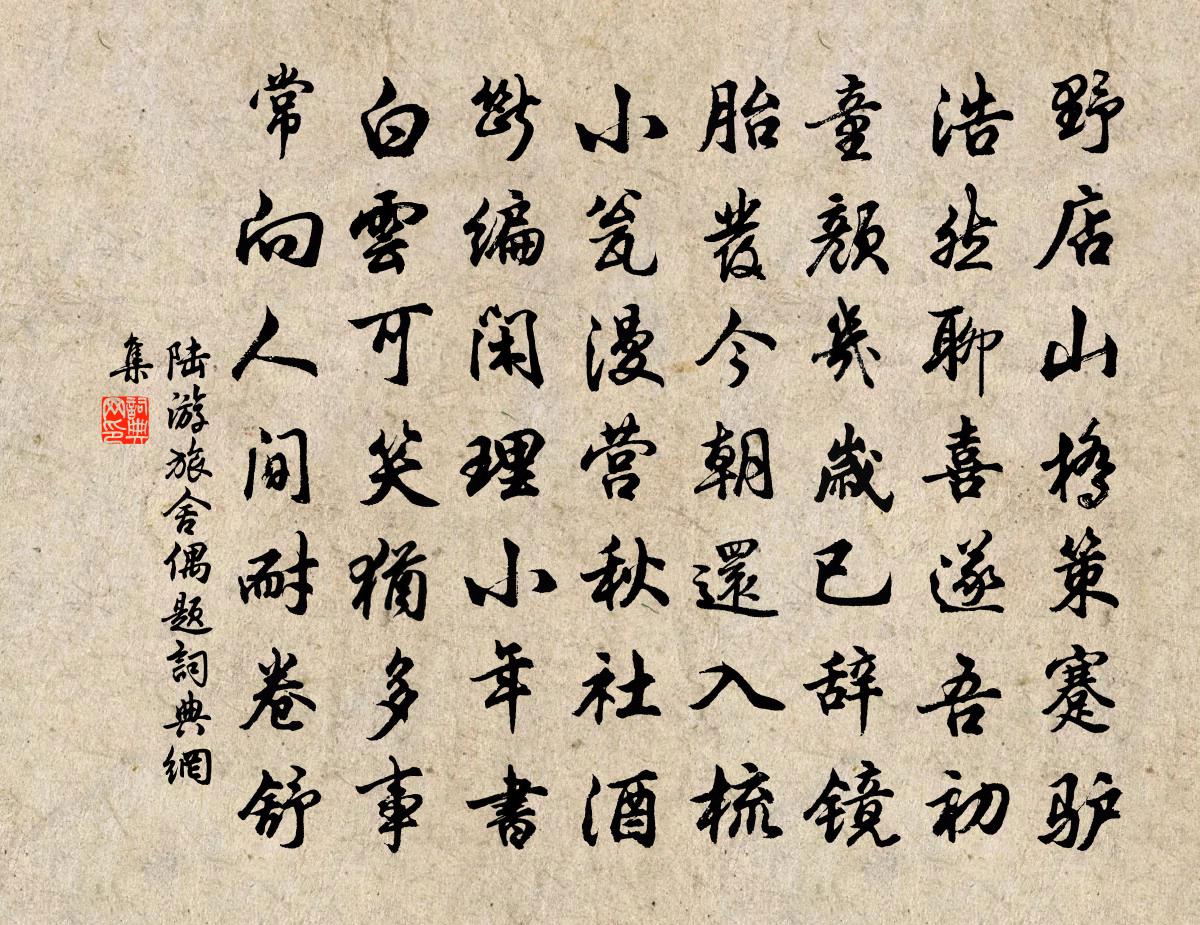 野店山橋策蹇驴
浩然聊喜遂吾初
童颜幾歲已辞镜
胎发今朝還入梳
小瓮漫营秋社酒
断编闲理小年書
白雲可笑猶多事
常向人间耐卷舒
陆游旅舍偶題詞典網
集
詞典
网印